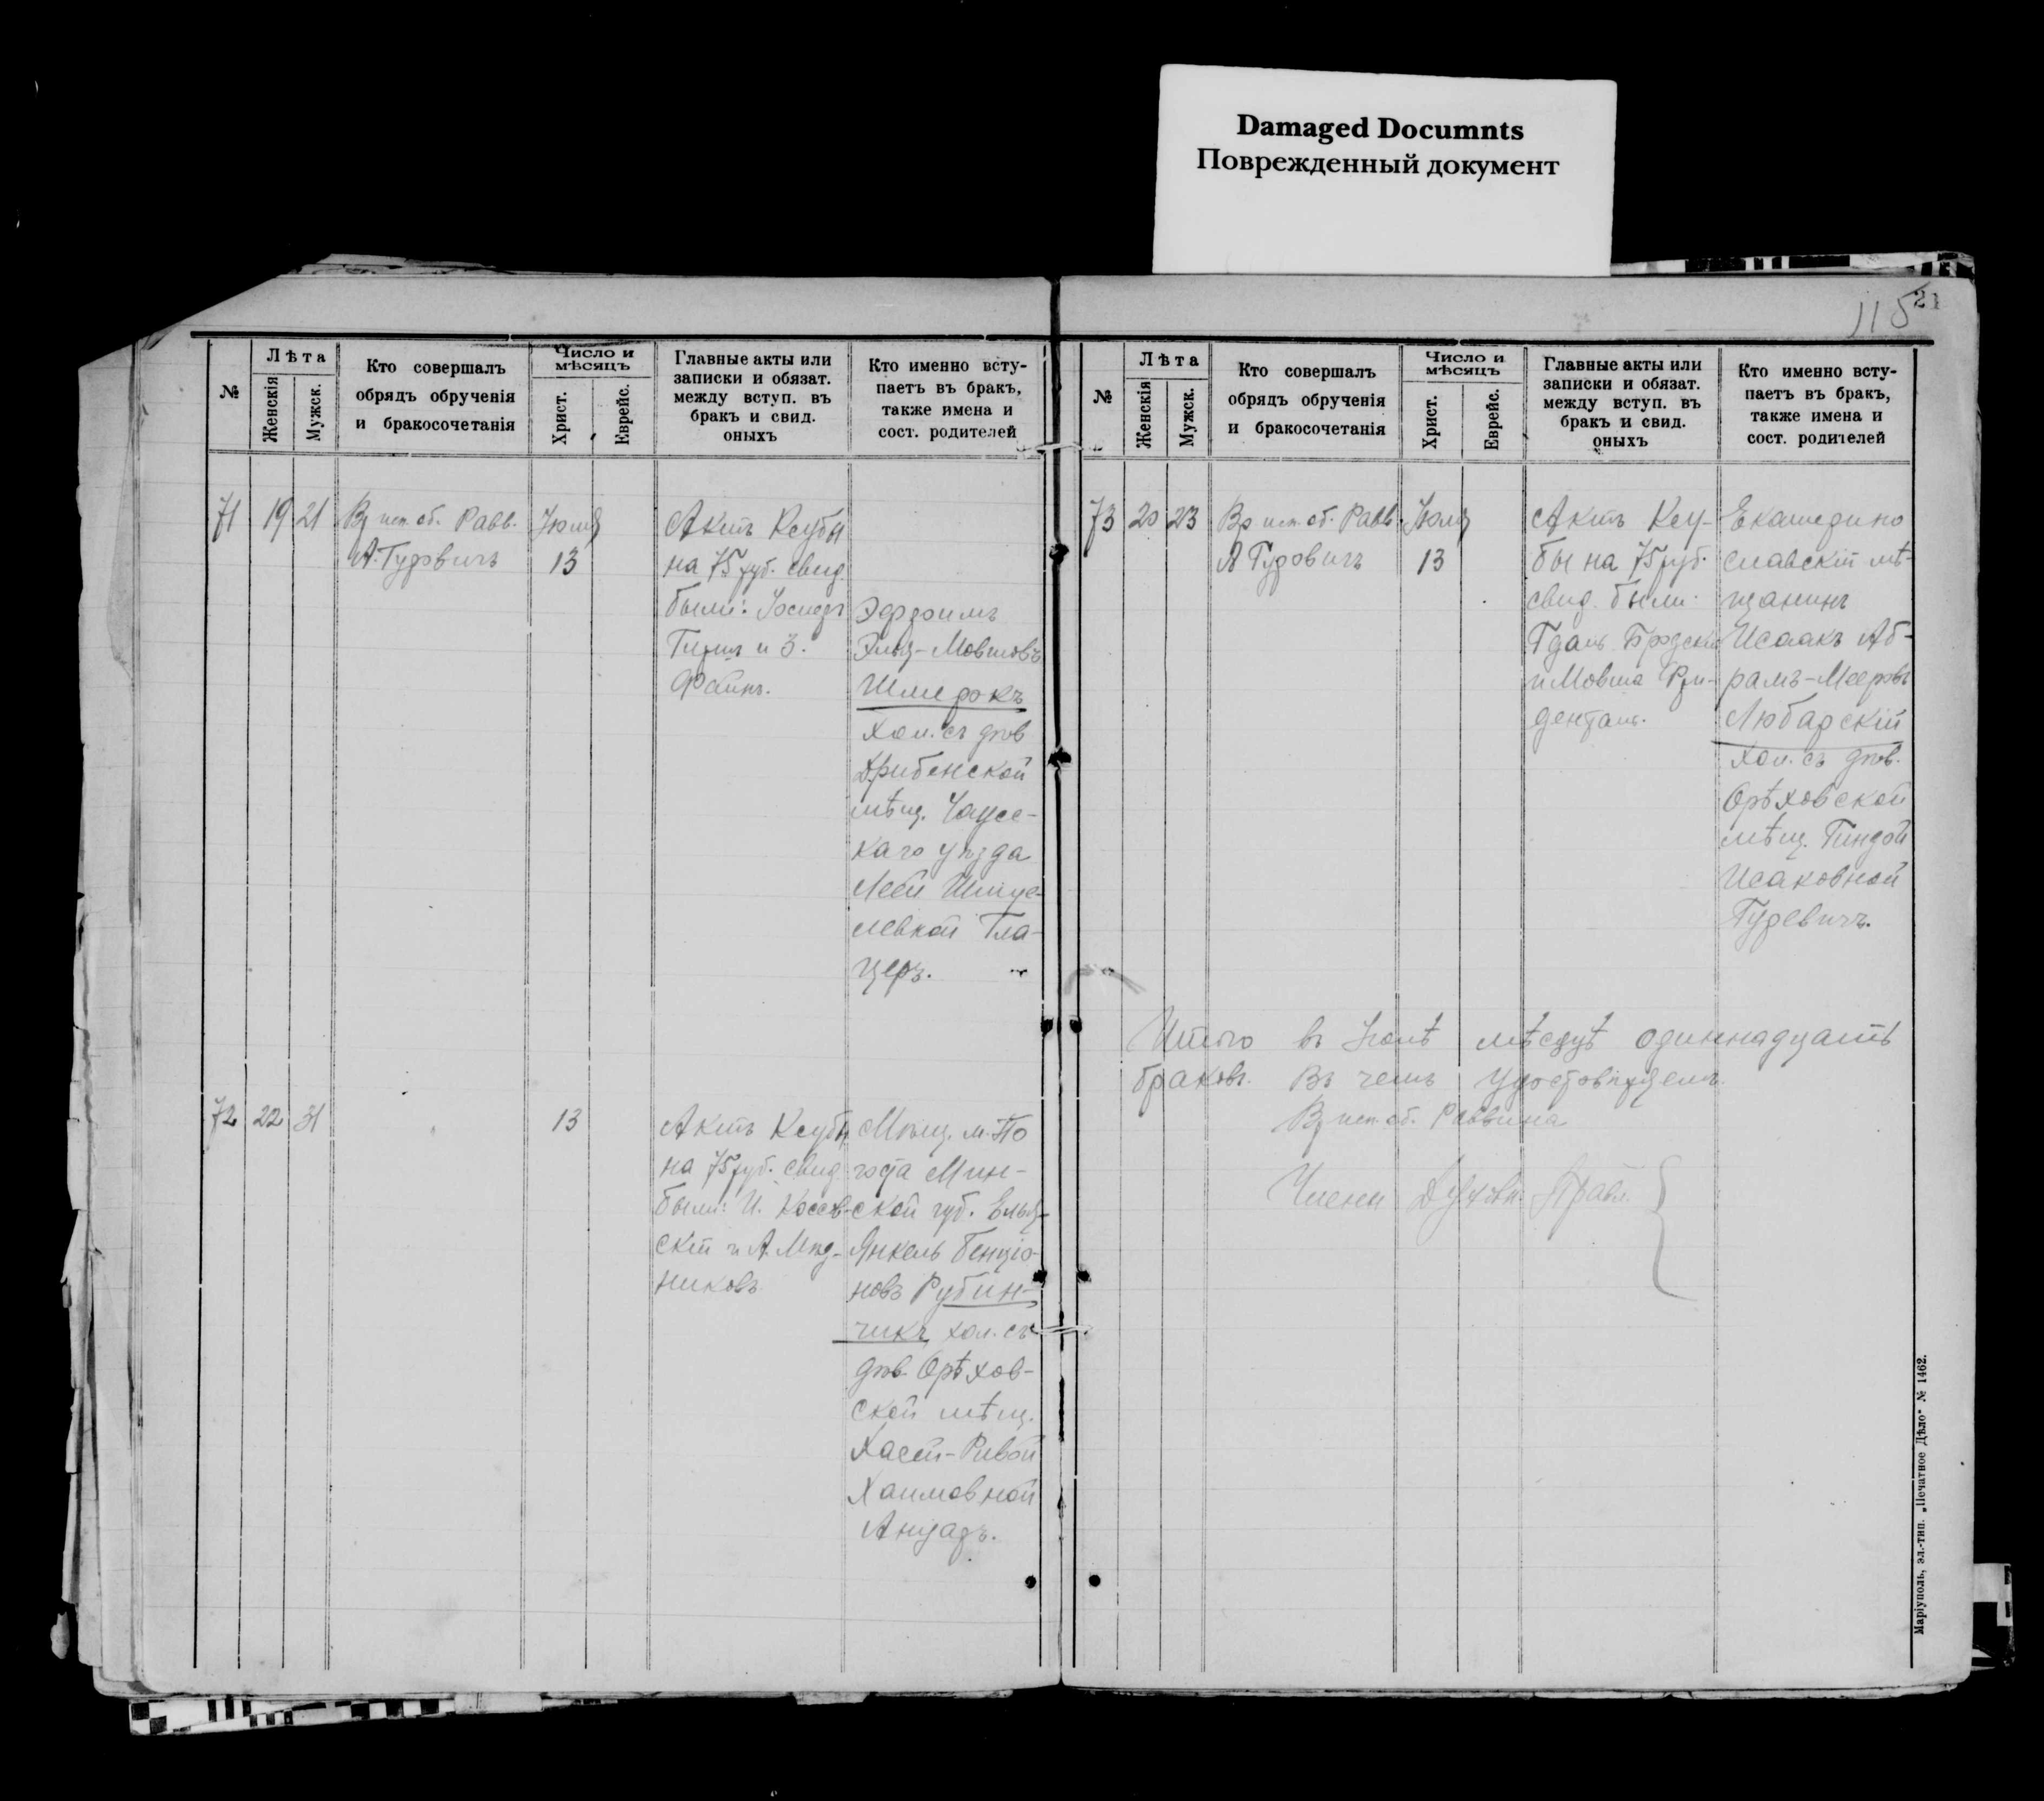 Damaged Documnts
Поврежденный документ
115
21
№
Лѣта
Женскія
Мужск.
Кто совершалъ
обрядъ обрученія
и бракосочетанія
Число и
мѣсяцъ
Христ.
Еврейс.
Главные акты или
записки и обязат.
между вступ. въ
бракъ и свид.
оныхъ
Кто именно всту-
паетъ въ бракъ,
также имена и
сост. родителей
71
19
21
Вр исп. об. Равв.
А. Гуровичъ
Юля
13
Актъ Ксубы
на 75 руб. свид.
были:
и З.
Файнъ.
Эфроимъ
Эля-Мовшовъ
Шмерокъ
хол. съ дѣв
Дрибенской
мѣщ. Чаусс-
каго уѣзда
Леей Шмуе-
левной Гла-
церъ.
72
22
31
13
Актъ Ксубы
на 75 руб. свид.
были: И. Косов-
скій и А. Мѣд-
никовъ
Мѣщ. м. По
госта Мин-
ской губ. Ель-
Янкель Бенціо-
новъ Рубин-
чикъ хол. съ
дѣв. Орѣхов-
ской мѣщ.
Хасей-Ривой
Хаимовной
Анцаръ.
№
Лѣта
Женскія
Мужск.
Кто совершалъ
обрядъ обрученія
и бракосочетанія
Число и
мѣсяцъ
Христ.
Еврейс.
Главные акты или
записки и обязат.
между вступ. въ
бракъ и свид.
оныхъ
Кто именно всту-
паетъ въ бракъ,
также имена и
сост. родителей
73
20
23
Вр исп. об. Равв.
А Гуровичъ
Юля
13
Актъ Ксу-
бы на 75 руб.
свид. были:
Гдаль Бродскій
и Мовша Фри-
денталь.
Екатерино
славскій мѣ-
щанинъ
Исаакъ Аб-
рамъ-Мееровъ
Любарскій
хол. съ дѣв.
Орѣховской
мѣщ. Гиндой
Исаковной
Гуревичъ.
Итого въ Іюлѣ мѣсяцѣ одиннадцать
браковъ. Въ чемъ удостовѣряемъ.
Вр исп. об. Раввина
Члены Духовн. Правл.
Маріуполь, эл.-тип. „Печатное Дѣло" № 1462.